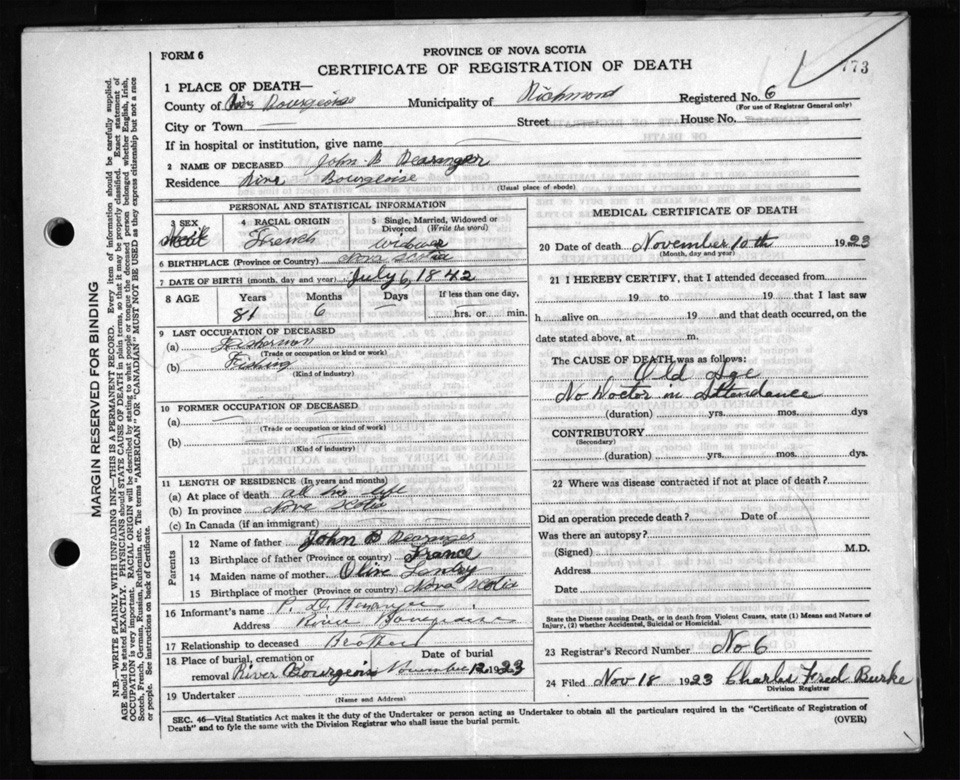 PROVINCE OF NOVA SCOTIA
FORM 6
CERTIFICATE OF REGISTRATION OF DEATH
773
1 PLACE OF DEATH—
County of Riv Bourgeoise Municipality of Richmond Registered No. 6
(For use of Registrar General only)
City or Town Street House No.
If in hospital or institution, give name
2 NAME OF DECEASED John B Dearanger
Residence River Bourgeoise
(Usual place of abode)
PERSONAL AND STATISTICAL INFORMATION
3 SEX Male
4 RACIAL ORIGIN French
5 Single, Married, Widowed or Divorced (Write the word) Widower
6 BIRTHPLACE (Province or Country) Nova Scotia
7 DATE OF BIRTH (month, day and year) July 6, 1842
8 AGE Years Months Days If less than one day,
81 6 hrs. or min.
9 LAST OCCUPATION OF DECEASED
(a) Fisherman
(Trade or occupation or kind or work)
(b) Fishing
(Kind of industry)
10 FORMER OCCUPATION OF DECEASED
(a)
(Trade or occupation or kind of work)
(b)
(Kind of industry)
11 LENGTH OF RESIDENCE (In years and months)
(a) At place of death all his life
(b) In province Nova Scotia
(c) In Canada (if an immigrant)
Parents
12 Name of father John B
13 Birthplace of father (Province or country) France
14 Maiden name of mother Olive Landry
15 Birthplace of mother (Province or country) Nova Scotia
16 Informant's name P.
Address River Bourgeoise
17 Relationship to deceased Brother
18 Place of burial, cremation or removal River Bourgeois Date of burial November 12, 1923
19 Undertaker
(Name and Address)
MEDICAL CERTIFICATE OF DEATH
20 Date of death November 10th 1923
(Month, day and year)
21 I HEREBY CERTIFY, that I attended deceased from
19 to 19 that I last saw
h alive on 19 and that death occurred, on the
date stated above, at m.
The CAUSE OF DEATH was as follows:
Old Age
No Doctor in Attendance
(duration) yrs. mos. dys
CONTRIBUTORY
(Secondary)
(duration) yrs. mos. dys.
22 Where was disease contracted if not at place of death?
Did an operation precede death? Date of
Was there an autopsy?
(Signed) M.D.
Address
Date
State the Disease Causing Death, or in death from Violent Causes, state (1) Means and Nature of
Injury, (2) whether Accidental, Suicidal or Homicidal.
23 Registrar's Record Number No 6
24 Filed Nov 18 1923 Charles Fred Burke
Division Registrar
SEC. 46—Vital Statistics Act makes it the duty of the Undertaker or person acting as Undertaker to obtain all the particulars required in the "Certificate of Registration of
Death" and to fyle the same with the Division Registrar who shall issue the burial permit.
(OVER)
MARGIN RESERVED FOR BINDING
N.B.—WRITE PLAINLY WITH UNFADING INK—THIS IS A PERMANENT RECORD. Every item of information should be carefully supplied.
AGE should be stated EXACTLY. PHYSICIANS should STATE CAUSE OF DEATH in plain terms, so that it may be properly classified. Exact statement of
OCCUPATION is very important. RACIAL ORIGIN will be described by stating to what people or tongue the deceased person belonged whether English, Irish,
Scotch, French, German, Russian, Ruthenian, etc. The terms "AMERICAN" OR "CANADIAN" MUST NOT BE USED as they express citizenship but not a race
or people. See instructions on back of Certificate.